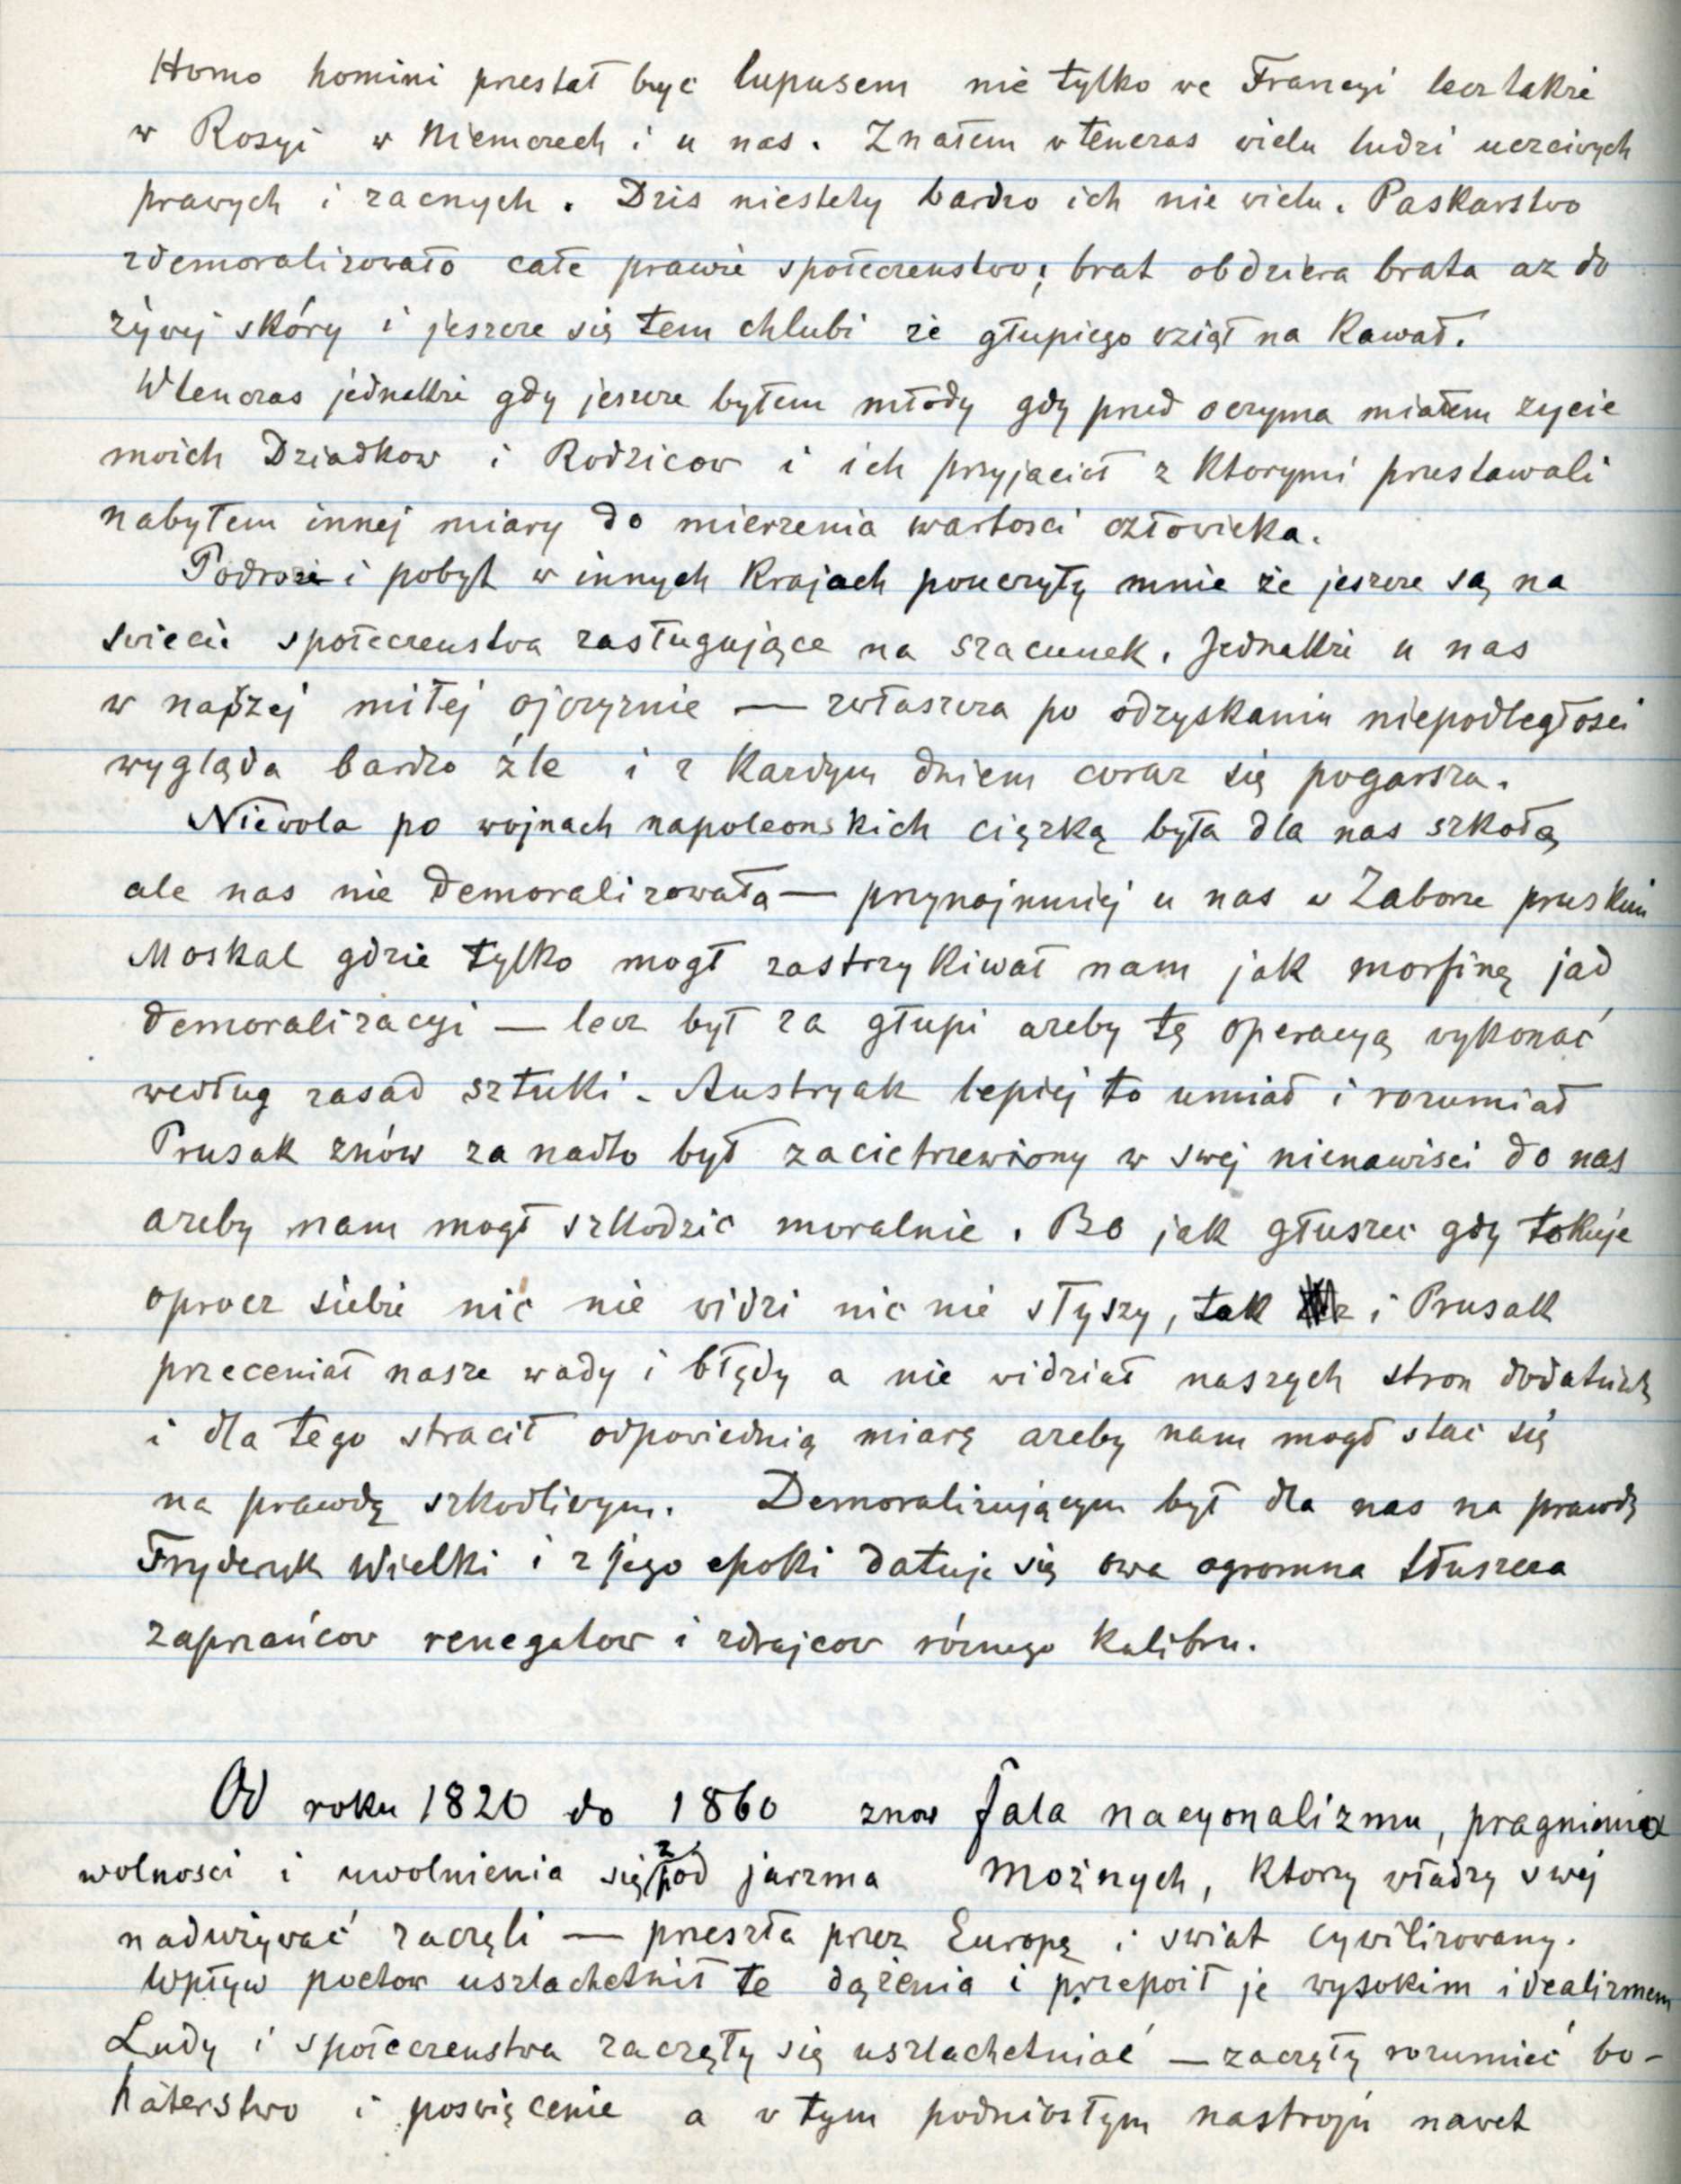 Homo homini przestał byc lupusem nie tylko we Francyi lecz także
w Rosyi w Niemczech i u nas. Znałem wtenczas wielu ludzi uczciwych
prawych i zacnych. Dzis niestety bardzo ich nie wielu. Paskarstwo
zdemoralizowało całe prawie społeczenstwo; brat obdziera brata az do
żywej skóry i jeszcze się tem chlubi że głupiego wziął na kawał.
Wtenczas jednakże gdy jeszcze byłem młody gdy przed oczyma miałem zycie
moich Dziadkow i Rodzicow i ich przyjaciół z ktorymi przestawali
nabyłem innej miary do mierzenia wartosci człowieka.
Podroże i pobyt w innych krajach pouczyły mnie że jeszcze są na
swiecie społeczenstwa zasługujące na szacunek. Jednakże u nas
w naszej miłej ojczyznie — zwłaszcza po odzyskaniu niepodległosci
wygląda bardzo źle i z kazdym dniem coraz się pogarsza.
Niewola po wojnach napoleonskich ciężką była dla nas szkołą
ale nas nie demoralizowała — przynajmniej u nas w Zaborze pruskim
Moskal gdzie tylko mogł zastrzykiwał nam jak morfinę jad
demoralizacyi — lecz był za głupi azeby tę operacyą wykonać
według zasad sztuki. Austryak lepiej to umiał i rozumiał
Prusak znów za nadto był zacietrzewiony w swej nienawisci do nas
azeby nam mogł szkodzic moralnie. Bo jak głuszec gdy tokuje
oprocz siebie nic nie widzi nic nie słyszy, tak i Prusak
przeceniał nasze wady i błędy a nie widział naszych stron dodatnich
i dla tego stracił odpowiednią miarę azeby nam mogł stac się
na prawdę szkodliwym. Demoralizującym był dla nas na prawdę
Fryderyk Wielki i z jego epoki datuje się owa ogromna tłuszcza
zaprzańcow renegatow i zdrajcow róznego kalibru.
Od roku 1820 do 1860 znow fala nacyonalizmu, pragnienia
wolnosci i uwolnienia się z pod jarzma możnych, ktorzy władzy swej
nadużywać zaczęli — przeszła przez Europę i swiat cywilizowany.
Wpływ poetow uszlachetnił te dążenia i przepoił je wysokim idealizmem
Ludy i społeczenstwa zaczęły się uszlachetniać — zaczęły rozumieć bo-
haterstwo i poswięcenie a w tym podniosłym nastroju nawet